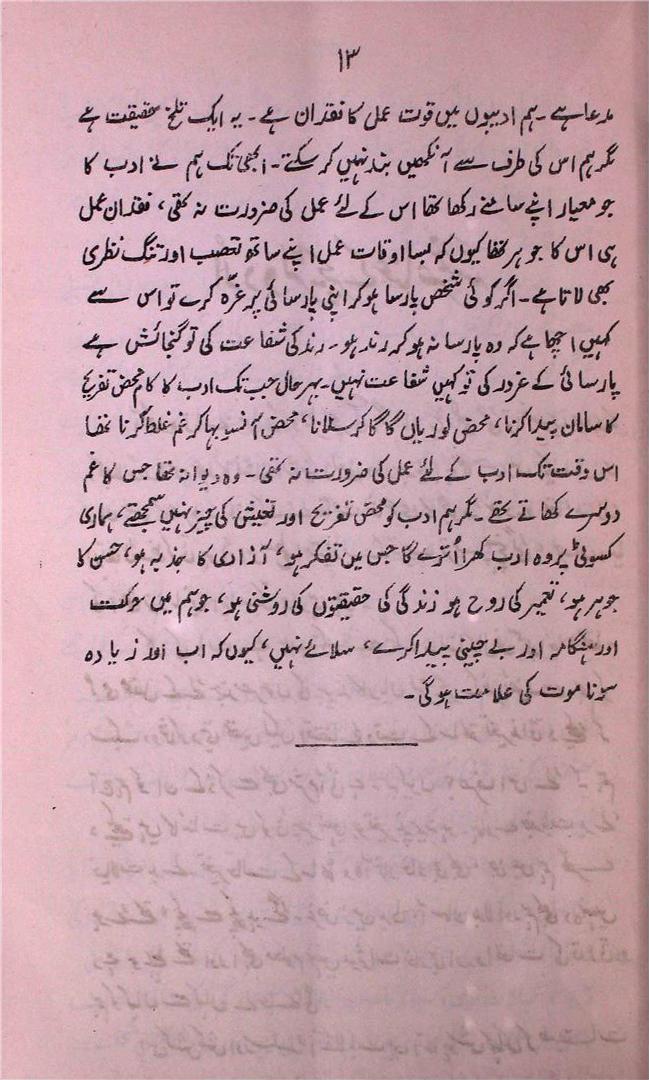 ۱۳
مدعا ہے ۔ ہم ادیبوں میں قوت عمل کا فقدان ہے ۔ یہ ایک تلخ حقیقت ہے
مگر ہم اس کی طرف سے آنکھیں بند نہیں کر سکتے ۔ ابھی تک ہم نے ادب کا
جو معیار اپنے سامنے رکھا تھا اس کے لئے عمل کی ضرورت نہ تھی ، فقدان عمل
ہی اس کا جوہر تھا کیوں کہ بسا اوقات عمل اپنے ساتھ تعصب اور تنگ نظری
بھی لاتا ہے ۔ اگر کوئی شخص پارسا ہو کر اپنی پارسائی پر غرّہ کرے تو اس سے
کہیں اچھا ہے کہ وہ پارسا نہ ہو کہ رند ہو ۔ رند کی شفاعت کی تو گنجائش ہے
پارسائی کے غرور کی تو کہیں شفاعت نہیں ۔ بہر حال جب تک ادب کا کام محض تفریح
کا سامان پیدا کرنا ، محض لوریاں گا گا کر سلانا ، محض آنسو بہا کر غم غلط کرنا تھا
اس وقت تک ادب کے لئے عمل کی ضرورت نہ تھی ۔ وہ دیوانہ تھا جس کا غم
دوسرے کھاتے تھے ۔ مگر ہم ادب کو محض تفریح اور تعیش کی چیز نہیں سمجھتے ، ہماری
کسوٹی پر وہ ادب کھرا اُترے گا جس میں تفکر ہو ، آزادی کا جذبہ ہو ، حسن کا
جوہر ہو ، تعمیر کی روح ہو زندگی کی حقیقتوں کی روشنی ہو ، جو ہم میں حرکت
اور ہنگامہ اور بے چینی پیدا کرے ، سلائے نہیں ، کیوں کہ اب اور زیادہ
سونا موت کی علامت ہوگی ۔